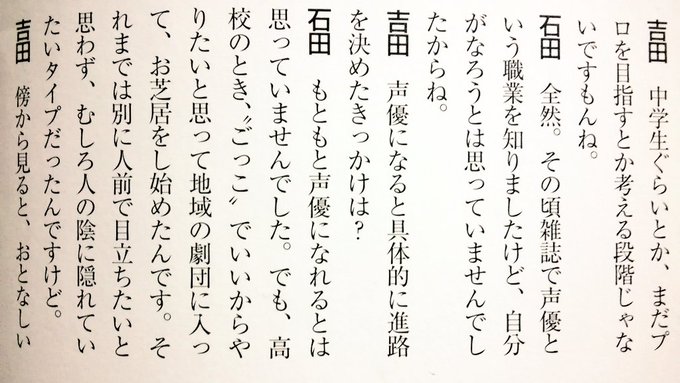 吉田　中学生ぐらいとか、まだプ
ロを目指すとか考える段階じゃな
いですもんね。
石田　全然。その頃雑誌で声優と
いう職業を知りましたけど、自分
がなろうとは思っていませんでし
たからね。
吉田　声優になると具体的に進路
を決めたきっかけは？
石田　もともと声優になれるとは
思っていませんでした。でも、高
校のとき、〝ごっこ〟でいいからや
りたいと思って地域の劇団に入っ
て、お芝居をし始めたんです。そ
れまでは別に人前で目立ちたいと
思わず、むしろ人の陰に隠れてい
たいタイプだったんですけど。
吉田　傍から見ると、おとなしい